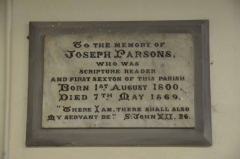 To the memory of
Joseph Parsons,
who was
Scripture Reader
and first Sexton of this Parish
Born 1st August 1800.
Died 7th May 1869.
"There I am, there shall also
my servant be" S. John XII. 26.